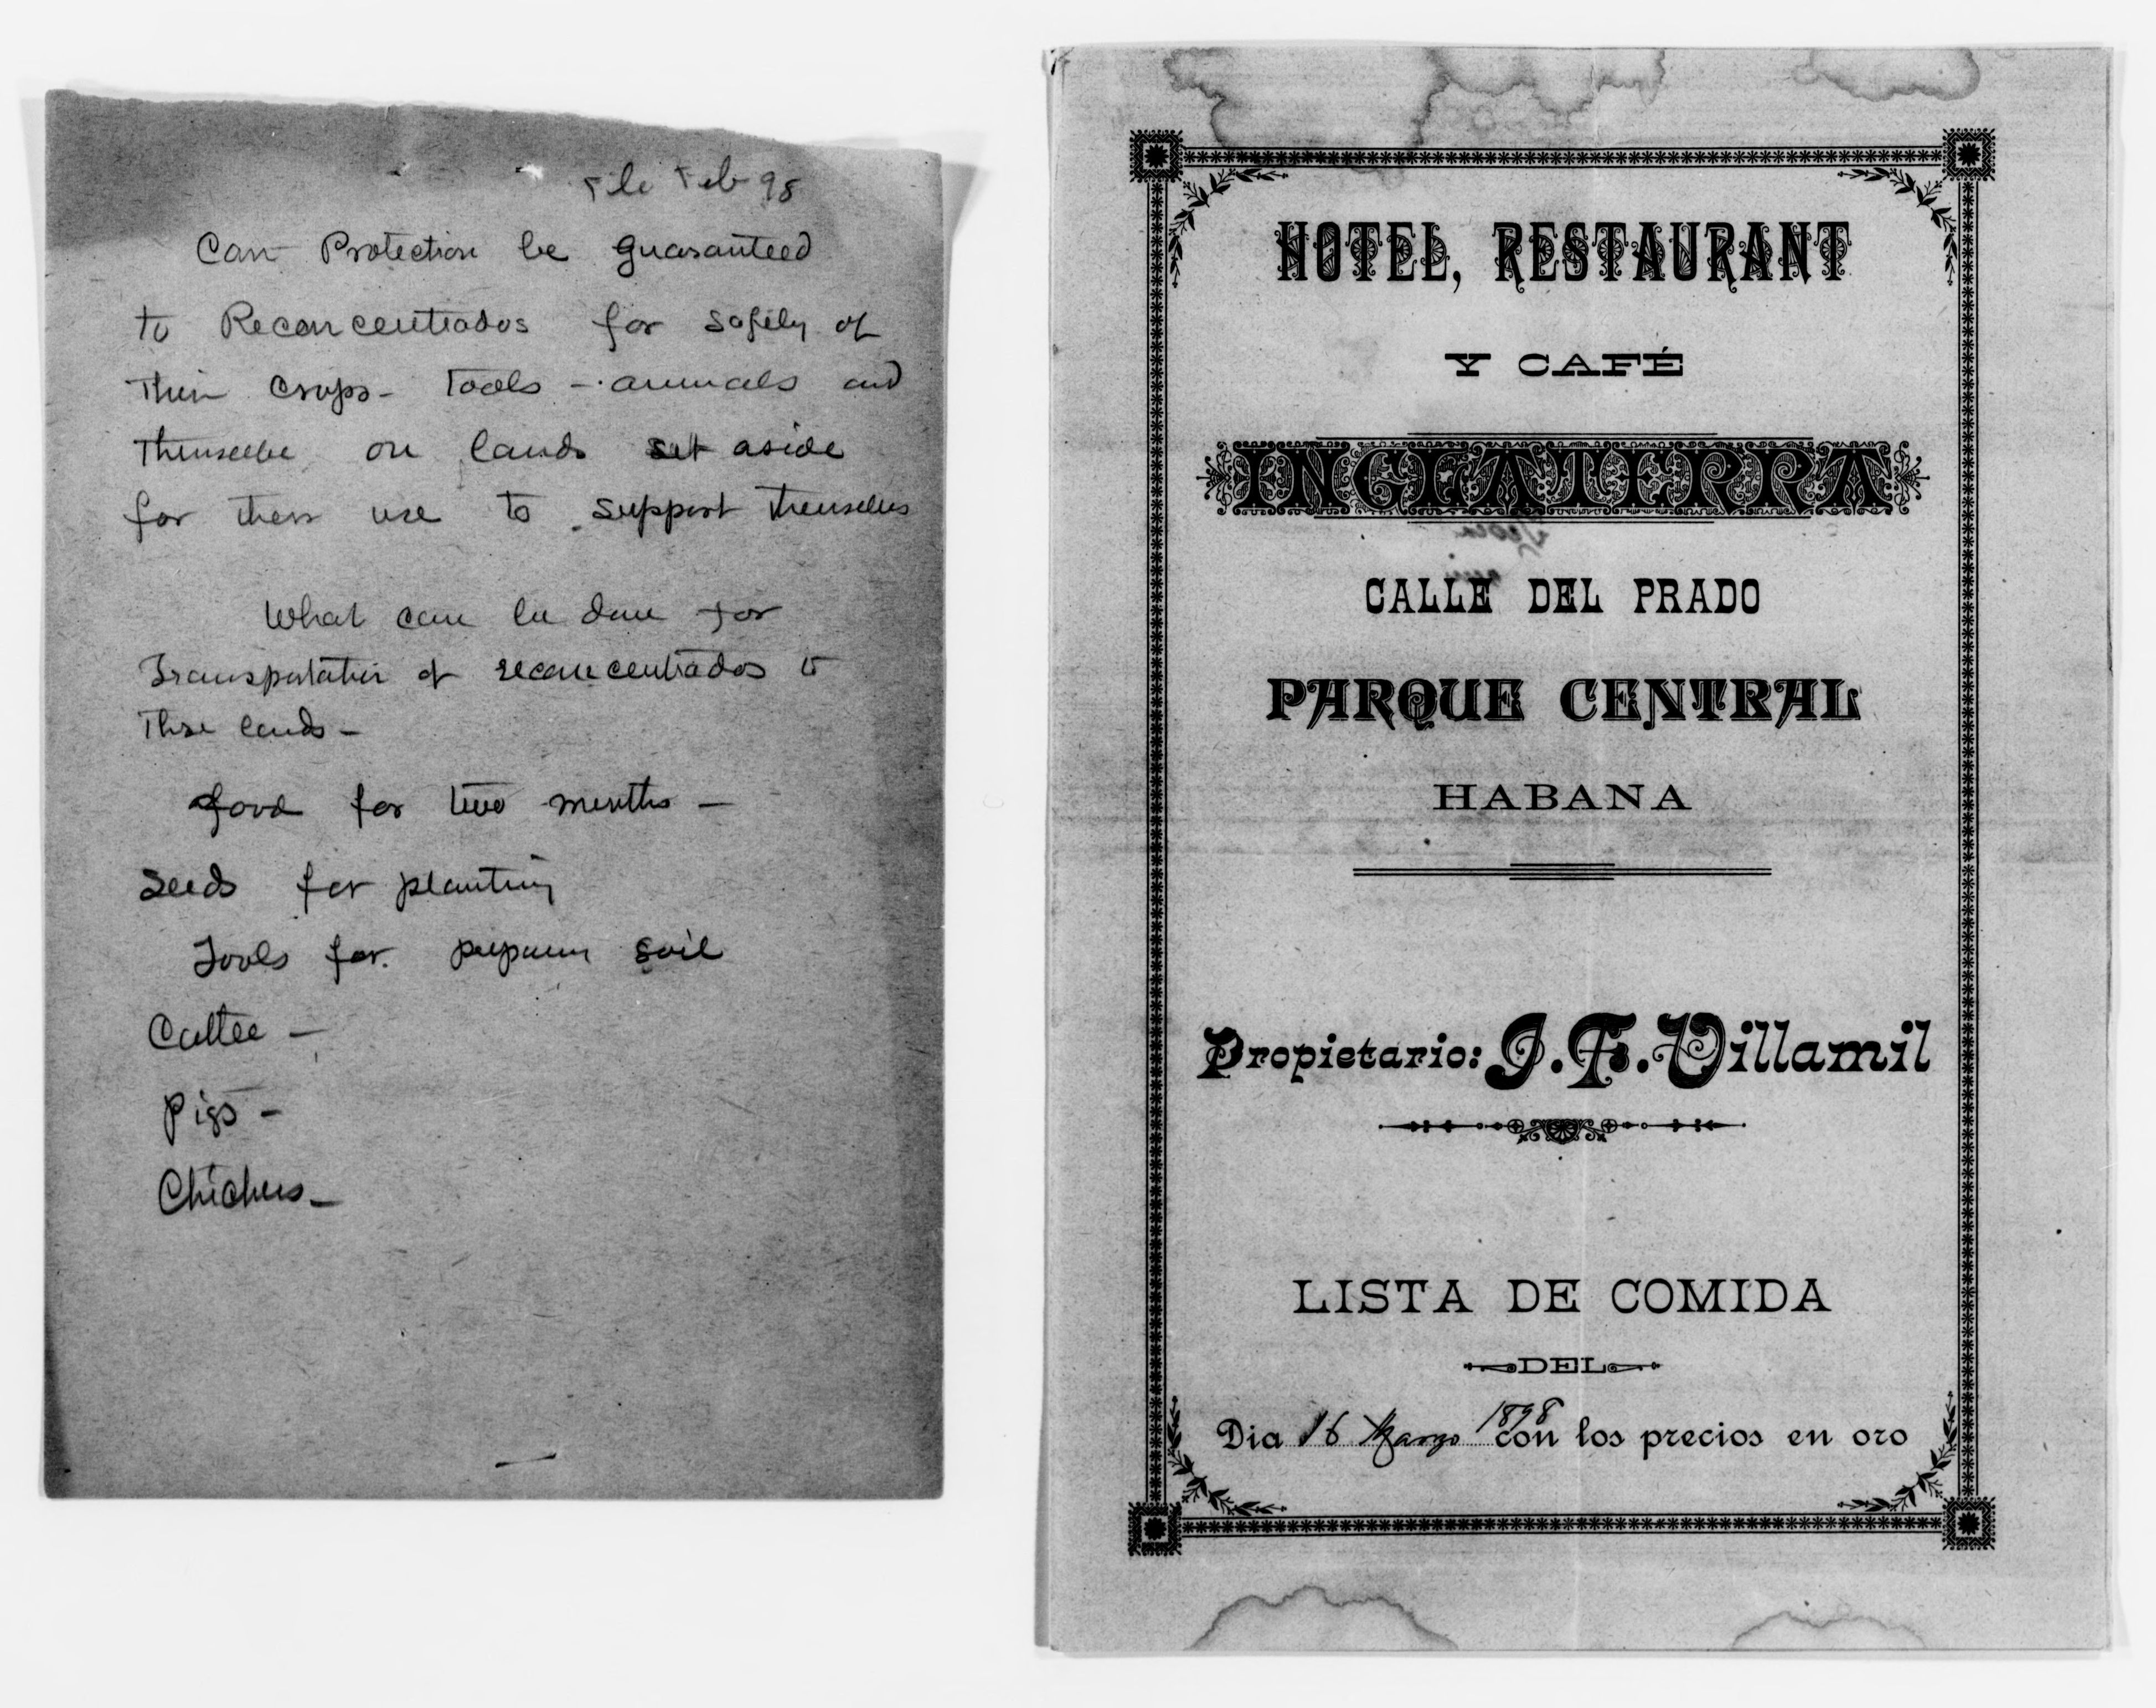 File Feb 98
Can Protection be guaranteed
to Reconcentrados for safety of
Their crops - Tools - animals and
Themselve on lands set aside
for their use to support themselves
What can be done for
Transportation of reconcentrados to
These lands -
food for two months -
Seeds for planting
Tools for preparing soil
Cattle -
Pigs -
Chickens -
HOTEL, RESTAURANT
Y CAFÉ
INGLATERRA
CALLE DEL PRADO
PARQUE CENTRAL
HABANA
Propietario: J. F. Villamil
LISTA DE COMIDA
DEL
Dia 16 Marzo 1898 con los precios en oro